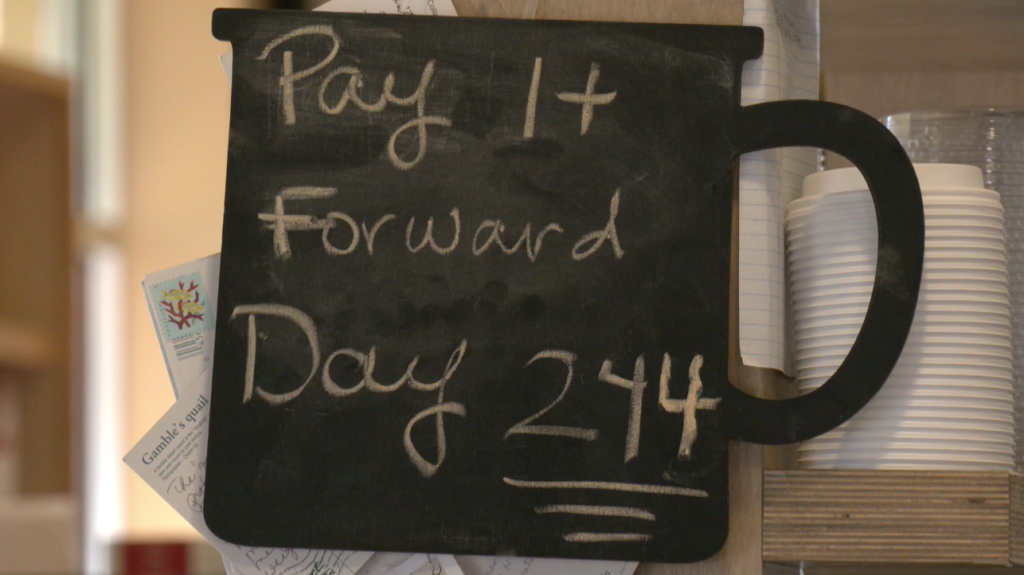 Pay 1+
Forward
Day 244
Gamble's quail
The